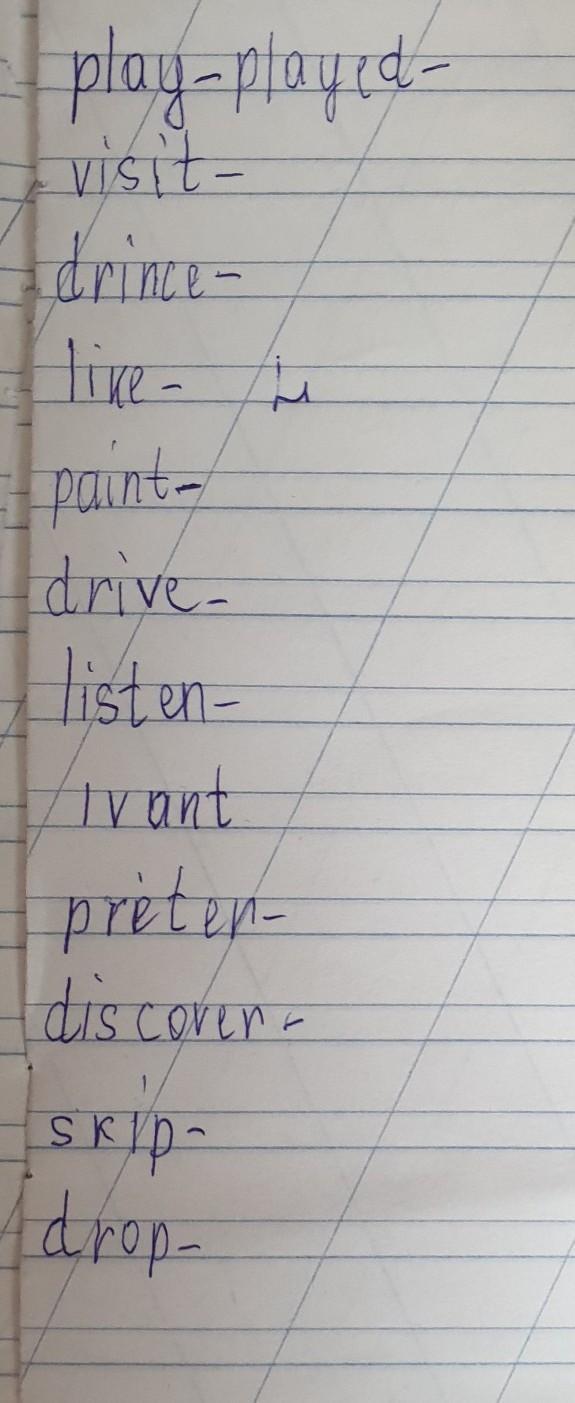 play-played-
visit-
drince-
like-
paint-
drive-
listen-
want
preten-
discover-
skip-
drop-